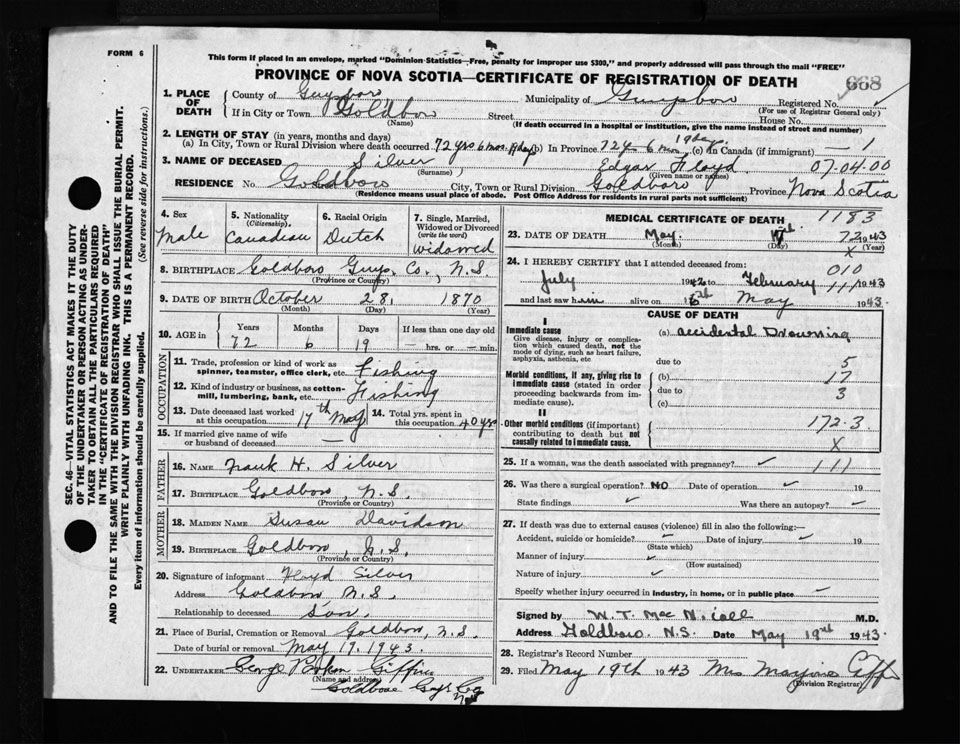 FORM 6
This form if placed in an envelope, marked "Dominion Statistics—Free, penalty for improper use $300," and properly addressed will pass through the mail "FREE"
PROVINCE OF NOVA SCOTIA—CERTIFICATE OF REGISTRATION OF DEATH
668
1. PLACE OF DEATH
County of Guysboro Municipality of Guysboro Registered No.
(For use of Registrar General only)
If in City or Town Goldboro Street House No.
(Name) (If death occurred in a hospital or institution, give the name instead of street and number)
2. LENGTH OF STAY (in years, months and days)
(a) In City, Town or Rural Division where death occurred 72 yrs 6 mos 19 dys (b) In Province 72 y 6 mos 19 dys (c) In Canada (if immigrant) — 1
3. NAME OF DECEASED Silver Edgar Floyd 07.04.00
(Surname) (Given name or names)
RESIDENCE No. Goldboro City, Town or Rural Division Goldboro Province Nova Scotia
(Residence means usual place of abode. Post Office Address for residents in rural parts not sufficient)
SEC. 46—VITAL STATISTICS ACT MAKES IT THE DUTY
OF THE UNDERTAKER OR PERSON ACTING AS UNDER-
TAKER TO OBTAIN ALL THE PARTICULARS REQUIRED
IN THE "CERTIFICATE OF REGISTRATION OF DEATH"
AND TO FILE THE SAME WITH THE DIVISION REGISTRAR WHO SHALL ISSUE THE BURIAL PERMIT.
WRITE PLAINLY WITH UNFADING INK. THIS IS A PERMANENT RECORD.
Every item of information should be carefully supplied. (See reverse side for instructions.)
4. Sex Male
5. Nationality (Citizenship) Canadian
6. Racial Origin Dutch
7. Single, Married, Widowed or Divorced (write the word) widowed
8. BIRTHPLACE Goldboro, Guys. Co., N.S.
(Province or Country)
9. DATE OF BIRTH October 28, 1870
(Month) (Day) (Year)
10. AGE in Years 72 Months 6 Days 19 If less than one day old — hrs. or — min.
OCCUPATION
11. Trade, profession or kind of work as spinner, teamster, office clerk, etc. Fishing
12. Kind of industry or business, as cotton-mill, lumbering, bank, etc. Fishing
13. Date deceased last worked at this occupation 17th May
14. Total yrs. spent in this occupation 40 yrs
15. If married give name of wife or husband of deceased —
FATHER
16. NAME Frank H. Silver
17. BIRTHPLACE Goldboro, N.S.
(Province or Country)
MOTHER
18. MAIDEN NAME Susan Davidson
19. BIRTHPLACE Goldboro, N.S.
(Province or Country)
20. Signature of informant Floyd Silver
Address Goldboro N.S.
Relationship to deceased Son
21. Place of Burial, Cremation or Removal Goldboro, N.S.
Date of burial or removal May 19, 1943.
22. UNDERTAKER George Giffin
(Name and address)
Goldboro Guys Co
MEDICAL CERTIFICATE OF DEATH 1183
23. DATE OF DEATH May 1943
(Month) (Day) (Year)
X
24. I HEREBY CERTIFY that I attended deceased from: 010
July 1942 to February 111 1943
and last saw him alive on May 1943.
CAUSE OF DEATH
I
Immediate cause
Give disease, injury or complication which caused death, not the mode of dying, such as heart failure, asphyxia, asthenia, etc
(a) accidental Drowning
due to 5
Morbid conditions, if any, giving rise to immediate cause (stated in order proceeding backwards from immediate cause).
(b) 17
due to 3
(c)
II
Other morbid conditions (if important) contributing to death but not causally related to immediate cause.
172.3
X
25. If a woman, was the death associated with pregnancy? 111
26. Was there a surgical operation? NO Date of operation 19
State findings Was there an autopsy?
27. If death was due to external causes (violence) fill in also the following:—
Accident, suicide or homicide? Date of injury 19
(State which)
Manner of injury
(How sustained)
Nature of injury
Specify whether injury occurred in industry, in home, or in public place
Signed by W. T. Mac M.D.
Address Goldboro. N.S. Date May 19 1943.
28. Registrar's Record No.
29. Filed May 19th 1943 Mrs
(Division Registrar)